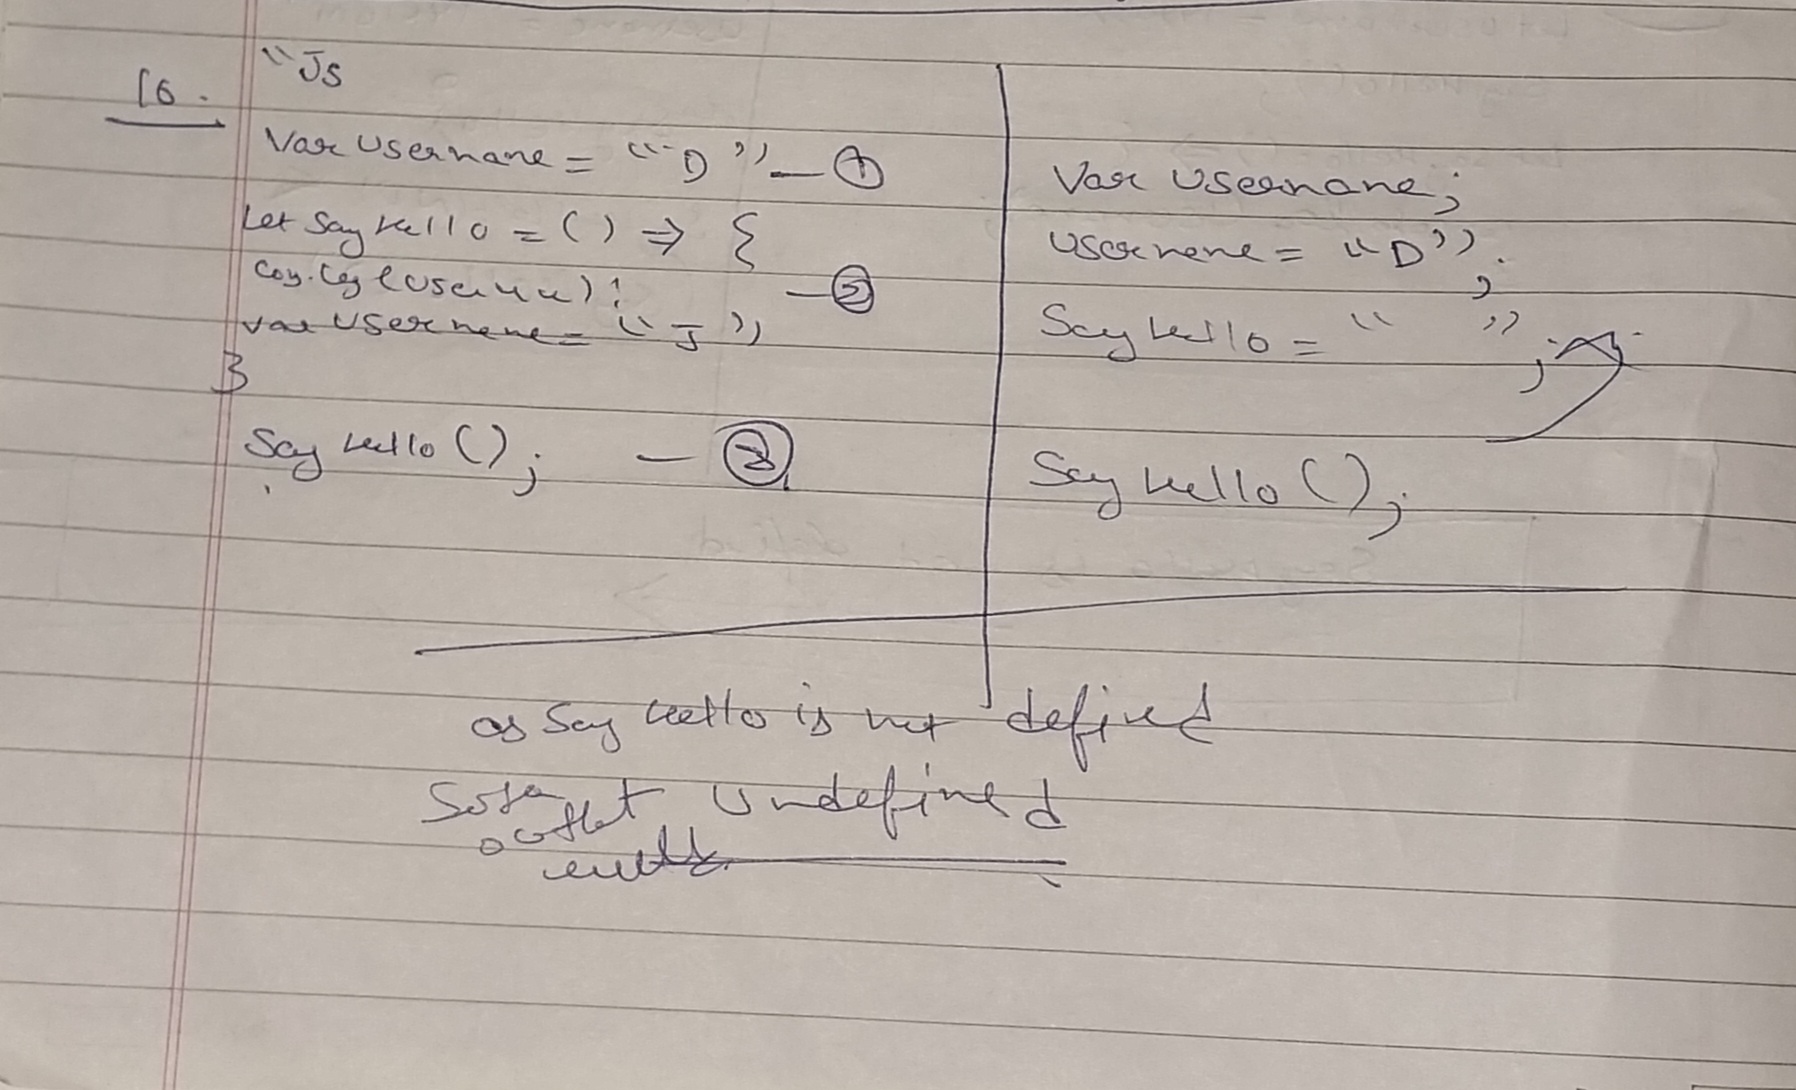 16.
"Js
Var username = "D" — 1
Let Say hello = () => {
— 2
var username = "J"
}
Say hello (); — 3
Var username;
username = "D";
Say hello = " ";
Say hello ();
as Say hello is not defined
undefined